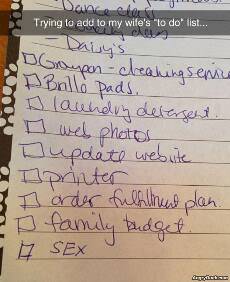 Dance class
Trying to add to my wife's "to do" list...
Daisy's
Groupon - cleaning service
Brillo pads.
laundry detergent.
web photos
update website
printer
order fulfillment plan
family budget
SEX